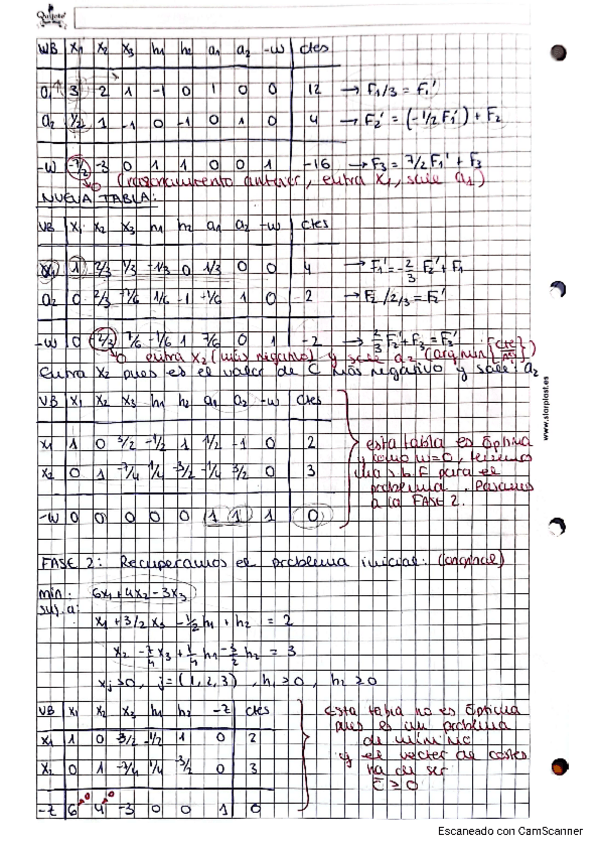 Quijote
VB x1 x2 x3 h1 h2 a1 a2 -w ctes
a1 3 2 1 -1 0 1 0 0 12 → F1/3 = F1'
a2 1/2 1 -1 0 -1 0 1 0 4 → F2' = (-1/2 F1') + F2
-w -7/2 -3 0 1 1 0 0 1 -16 → F3 = 7/2 F1' + F3
(razonamiento anterior, entra x1, sale a1)
NUEVA TABLA:
VB x1 x2 x3 h1 h2 a1 a2 -w ctes
x1 1 2/3 1/3 -1/3 0 1/3 0 0 4 → F1' = -2/3 F2' + F1
a2 0 2/3 -7/6 1/6 -1 -1/6 1 0 2 → F2 /2/3 = F2'
-w 0 7/6 -1/6 1 7/6 0 1 -2 → 2/3 F2' + F3 = F3'
entra x2 (más negativo) y sale a2 (arg min {cte})
Entra x2 pues es el valor de C más negativo y sale: a2
VB x1 x2 x3 h1 h2 a1 a2 -w ctes
x1 1 0 3/2 -1/2 1 1/2 -1 0 2
x2 0 1 -7/4 1/4 -3/2 -1/4 3/2 0 3
-w 0 0 0 0 0 1 1 1 0
esta tabla es óptima
y como w=0, tenemos
una s.b.F para el
problema. Pasamos
a la FASE 2.
www.starplast.es
FASE 2: Recuperamos el problema inicial: (original)
min: 6x1+4x2-3x3
suj.a:
x1 + 3/2 x3 - 1/2 h1 + h2 = 2
x2 - 7/4 x3 + 1/4 h1 - 3/2 h2 = 3
xj ≥ 0, j = (1,2,3), h1 ≥ 0, h2 ≥ 0
VB x1 x2 x3 h1 h2 -z ctes
x1 1 0 3/2 -1/2 1 0 2
x2 0 1 -7/4 1/4 -3/2 0 3
-z 6 4 -3 0 0 1 0
Esta tabla no es óptima
pues es un problema
de mínimo
y el vector de costes
ha de ser
c̄ ≥ 0
Escaneado con CamScanner